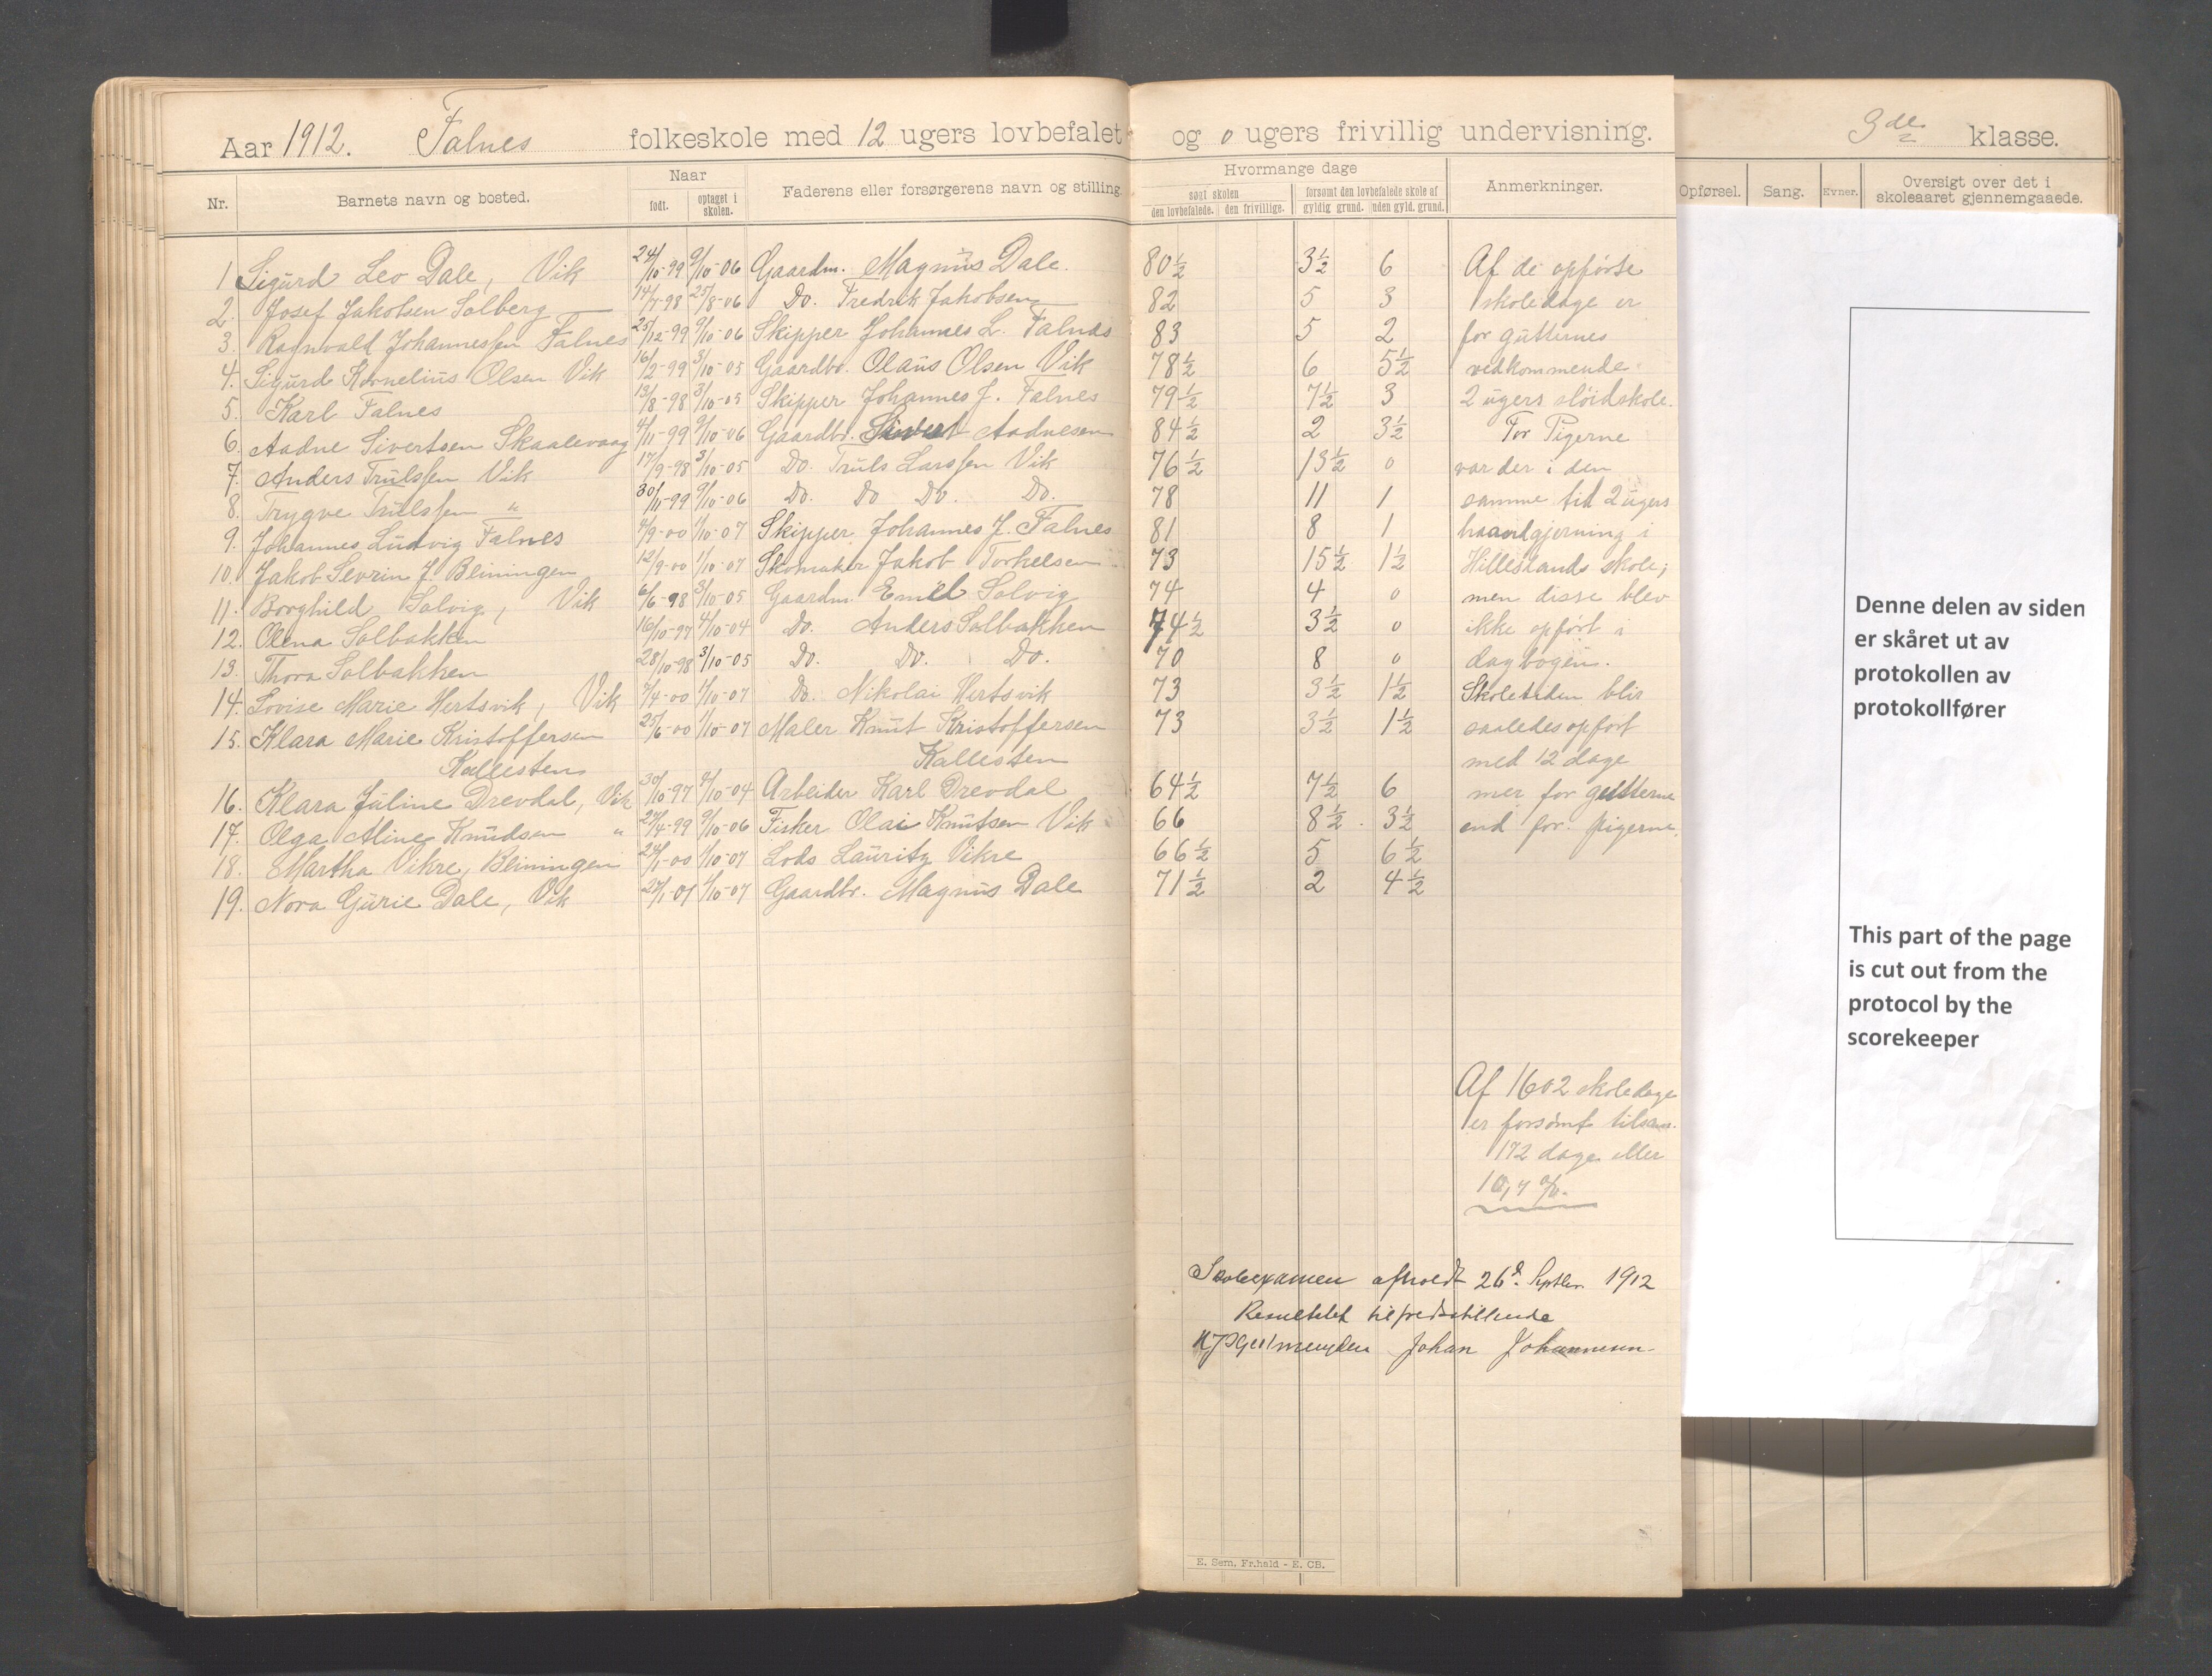 Aar 1912. Falnes folkeskole med 12 ugers lovbefalet og 0 ugers frivillig undervisning. 3de klasse.
Nr. Barnets navn og bosted. Naar født. optaget i skolen. Faderens eller forsørgerens navn og stilling. Hvormange dage søgt skolen den lovbefalede. den frivillige. forsømt den lovbefalede skole af gyldig grund. uden gyld. grund. Anmerkninger. Opførsel. Sang. Evner. Oversigt over det i skoleaaret gjennemgaaede.
1 Sigurd Leo Dale, Vik 24/10-99 9/10-06 Gaardm. Magnus Dale. 80 1/2 3 1/2 6 Af de opførte
2. Josef Jakobsen Solberg 14/7-98 25/8-06 Do. Fredrik Jakobsen 82 5 3 skoledage er
3. Ragnvald Johannessen Falnes 25/12-99 9/10-06 Skipper Johannes L. Falnes 83 5 2 for gutternes
4. Sigurd Kornelius Olsen Vik 16/2-99 3/10-05 Gaardbr. Olaus Olsen Vik 78 1/2 6 5 1/2 vedkommende
5. Karl Falnes 13/8-98 3/10-05 Skipper Johannes J. Falnes 79 1/2 7 1/2 3 2 ugers sløidskole.
6. Aadne Sivertsen Skaalevaag 4/11-99 9/10-06 Gaardbr. Sivert Aadnesen 84 1/2 2 3 1/2 For Pigerne
7. Anders Trulssen Vik 17/9-98 3/10-05 Do. Truls Larssen Vik 76 1/2 13 1/2 0 var der i den
8. Trygve Trulssen " 30/11-99 9/10-06 Do. Do Do. Do. 78 11 1 samme tid 2 ugers
9. Johannes Ludvig Falnes 4/9-00 1/10-07 Skipper Johannes J. Falnes 81 8 1 haandgjerning i
10. Jakob Sevrin J. Bleiningen 12/9-00 1/10-07 Skomaker Jakob Torkelsen 73 15 1/2 1 1/2 Hillestands skole;
11. Borghild Solvig, Vik 6/6-98 3/10-05 Gaardm. Emil Solvig 74 4 0 men disse blev
12. Olena Solbakken 16/10-97 4/10-04 Do. Anders Solbakken 74 1/2 3 1/2 0 ikke opført i
13. Thora Solbakken 28/10-98 3/10-05 Do. Do. Do. 70 8 0 dagbogen.
14. Lovise Marie Hertsvik, Vik 7/4-00 1/10-07 Do. Nikolai Hertsvik 73 3 1/2 1 1/2 Skoletiden blir
15. Klara Marie Kristoffersen 25/6-00 1/10-07 Maler Knut Kristoffersen 73 3 1/2 1 1/2 saaledes opført
Kallesten Kallesten med 12 dage
16. Klara Juline Drevdal, Vik 30/10-97 4/10-04 Arbeider Karl Drevdal 64 1/2 7 1/2 6 mer for gutterne
17. Olga Aline Knudsen " 27/4-99 9/10-06 Fisker Olai Knutsen Vik 66 8 1/2 3 1/2 end for pigerne.
18. Martha Vikre, Bleiningen 24/1-00 1/10-07 Lods Lauritz Vikre 66 1/2 5 6 1/2
19. Nora Gurie Dale, Vik 27/1-01 1/10-07 Gaardbr. Magnus Dale 71 1/2 2 4 1/2
Af 1602 skoledage
er forsømt tilsam.
172 dage eller
10,7 %.
Skoleexamen afholdt 26d. Septbr. 1912
Resultatet tilfredsstillende
Johan Johannesen
E. Sem, Fr.hald - E. CB.
Denne delen av siden
er skåret ut av
protokollen av
protokollfører
This part of the page
is cut out from the
protocol by the
scorekeeper